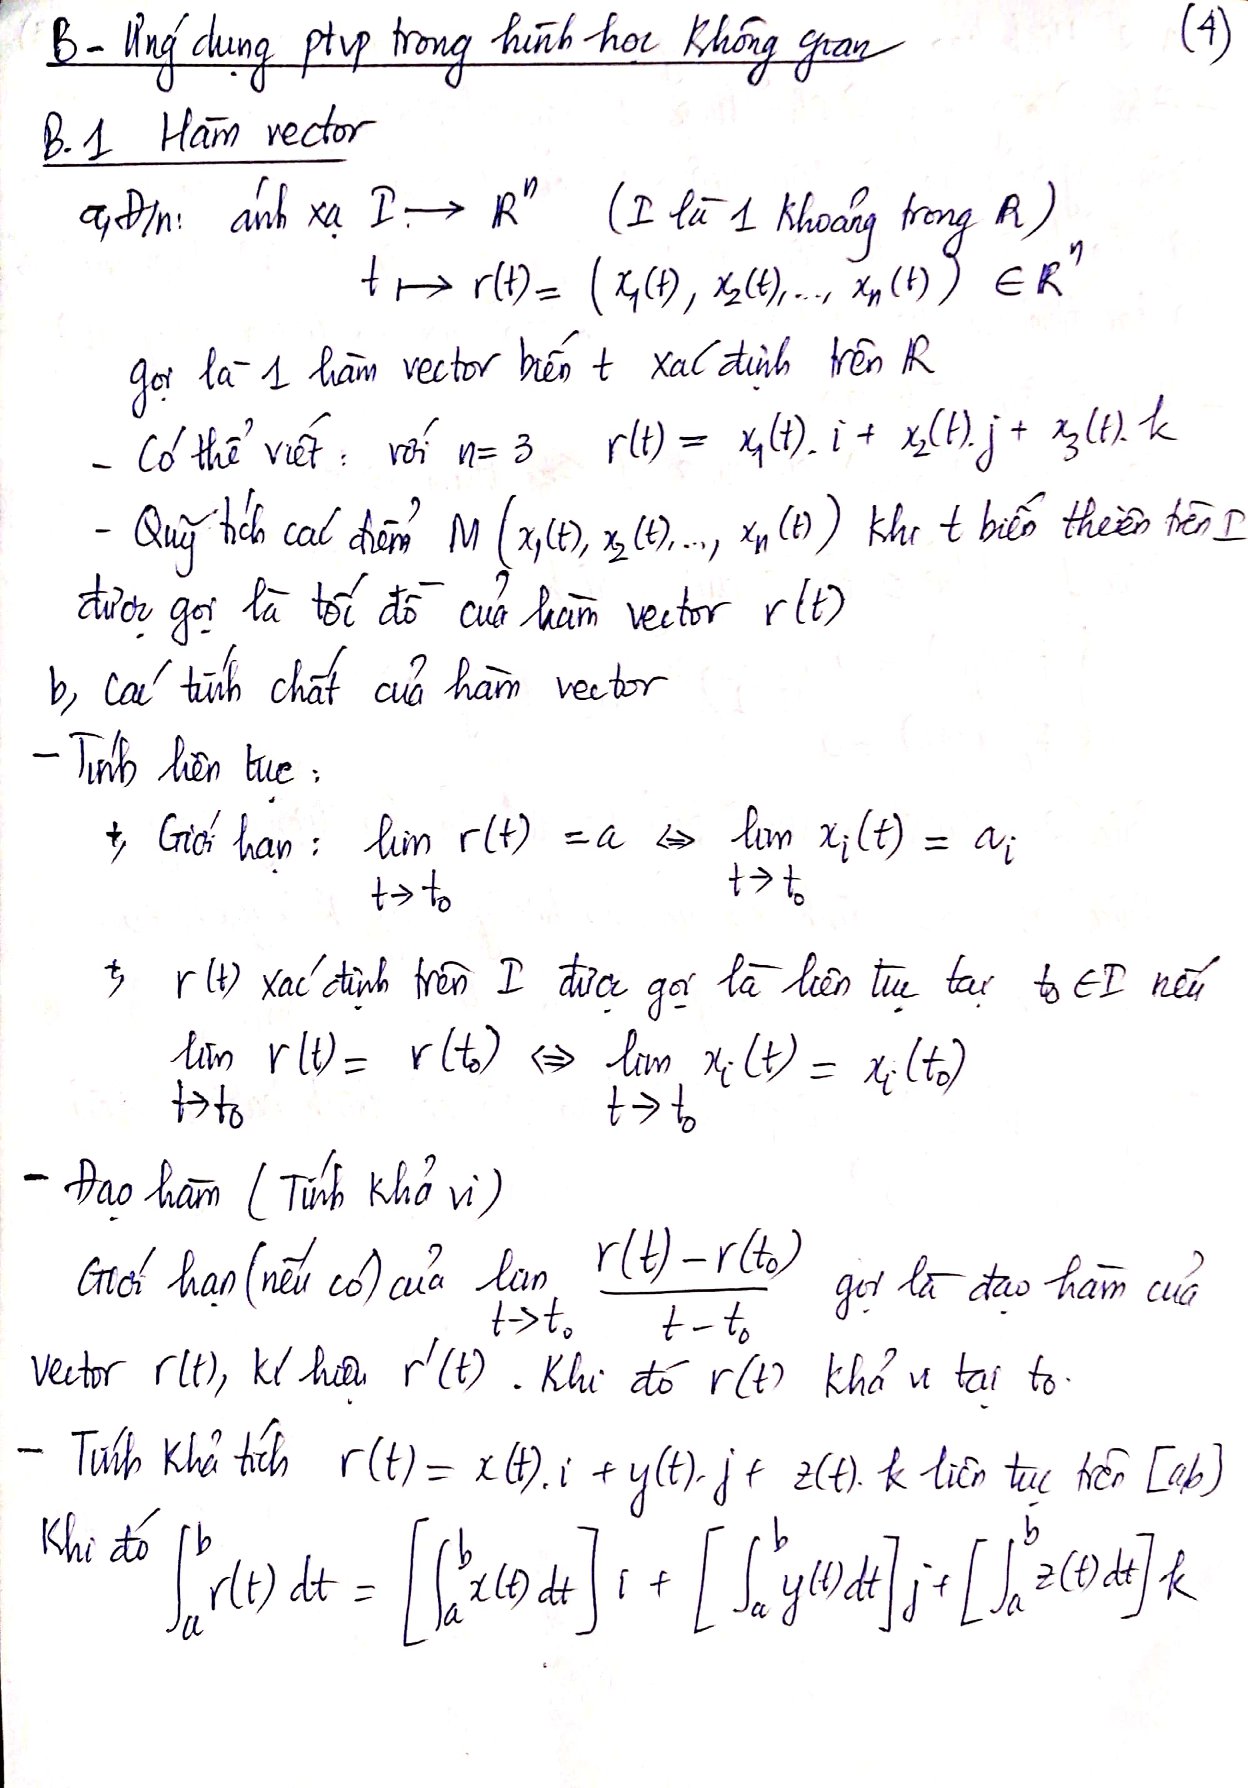 B - Ứng dụng ptvp trong hình học không gian (4)
B.1 Hàm vector
a, Đ/n: ánh xạ I → Rⁿ (I là 1 khoảng trong R)
t ↦ r(t) = (x₁(t), x₂(t), ..., xₙ(t)) ∈ Rⁿ
gọi là 1 hàm vector biến t xác định trên R
- Có thể viết: với n = 3 r(t) = x₁(t). i + x₂(t). j + x₃(t). k
- Quỹ tích các điểm M (x₁(t), x₂(t), ..., xₙ(t)) khi t biến thiên trên I
được gọi là tốc đồ của hàm vector r(t)
b, Các tính chất của hàm vector
- Tính liên tục:
+, Giới hạn: lim r(t) = a ⇔ lim xᵢ(t) = aᵢ
t→t₀ t→t₀
+, r(t) xác định trên I được gọi là liên tục tại t₀ ∈ I nếu
lim r(t) = r(t₀) ⇔ lim xᵢ(t) = xᵢ(t₀)
t→t₀ t→t₀
- Đạo hàm (Tính khả vi)
Giới hạn (nếu có) của lim_{t→t₀} (r(t) - r(t₀))/(t - t₀) gọi là đạo hàm của
vector r(t), kí hiệu r'(t). Khi đó r(t) khả vi tại t₀.
- Tính khả tích r(t) = x(t). i + y(t). j + z(t). k liên tục trên [a,b]
Khi đó ∫ₐᵇ r(t) dt = [∫ₐᵇ x(t) dt] i + [∫ₐᵇ y(t) dt] j + [∫ₐᵇ z(t) dt] k